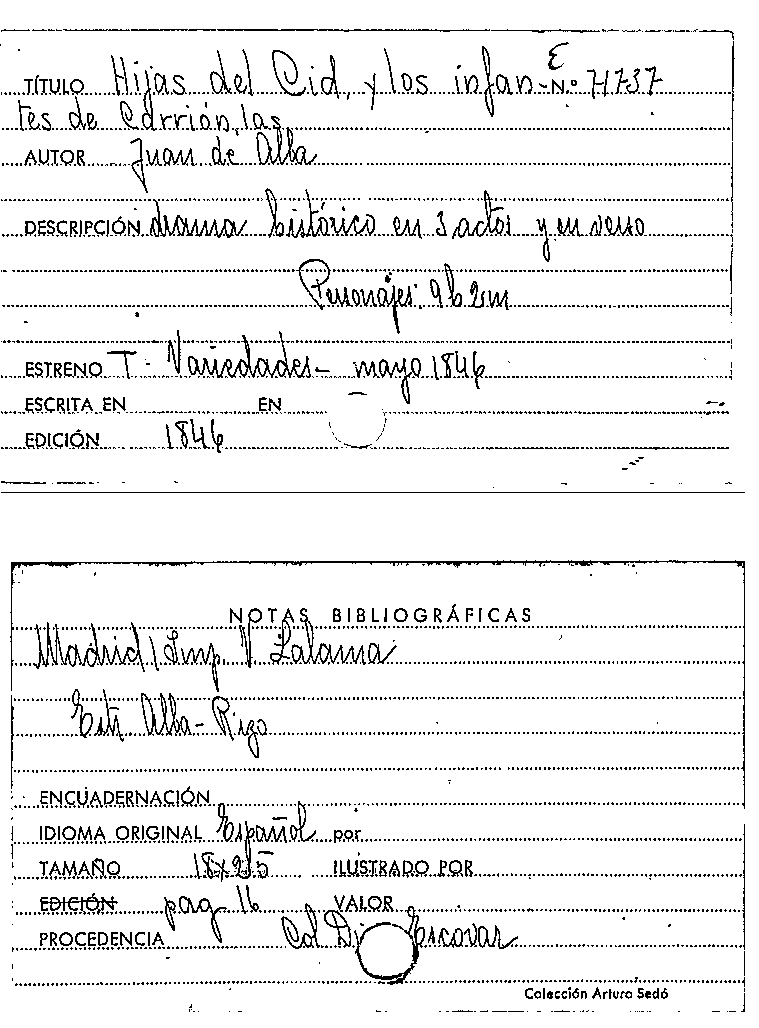 E
TÍTULO Hijas del Cid, y los infan- N.º 71737
tes de Carrión, las
AUTOR Juan de Alba
DESCRIPCIÓN drama histórico en 3 actos y en verso
Personajes: 9h 2m
ESTRENO T. Variedades - mayo 1846
ESCRITA EN EN
EDICIÓN 1846
NOTAS BIBLIOGRÁFICAS
Madrid / Imp. V. Lalama
Alba - Rizo
ENCUADERNACIÓN
IDIOMA ORIGINAL Español por
TAMAÑO ILUSTRADO POR
EDICIÓN pag 16 VALOR
PROCEDENCIA Col Escovar
Colección Arturo Sedó